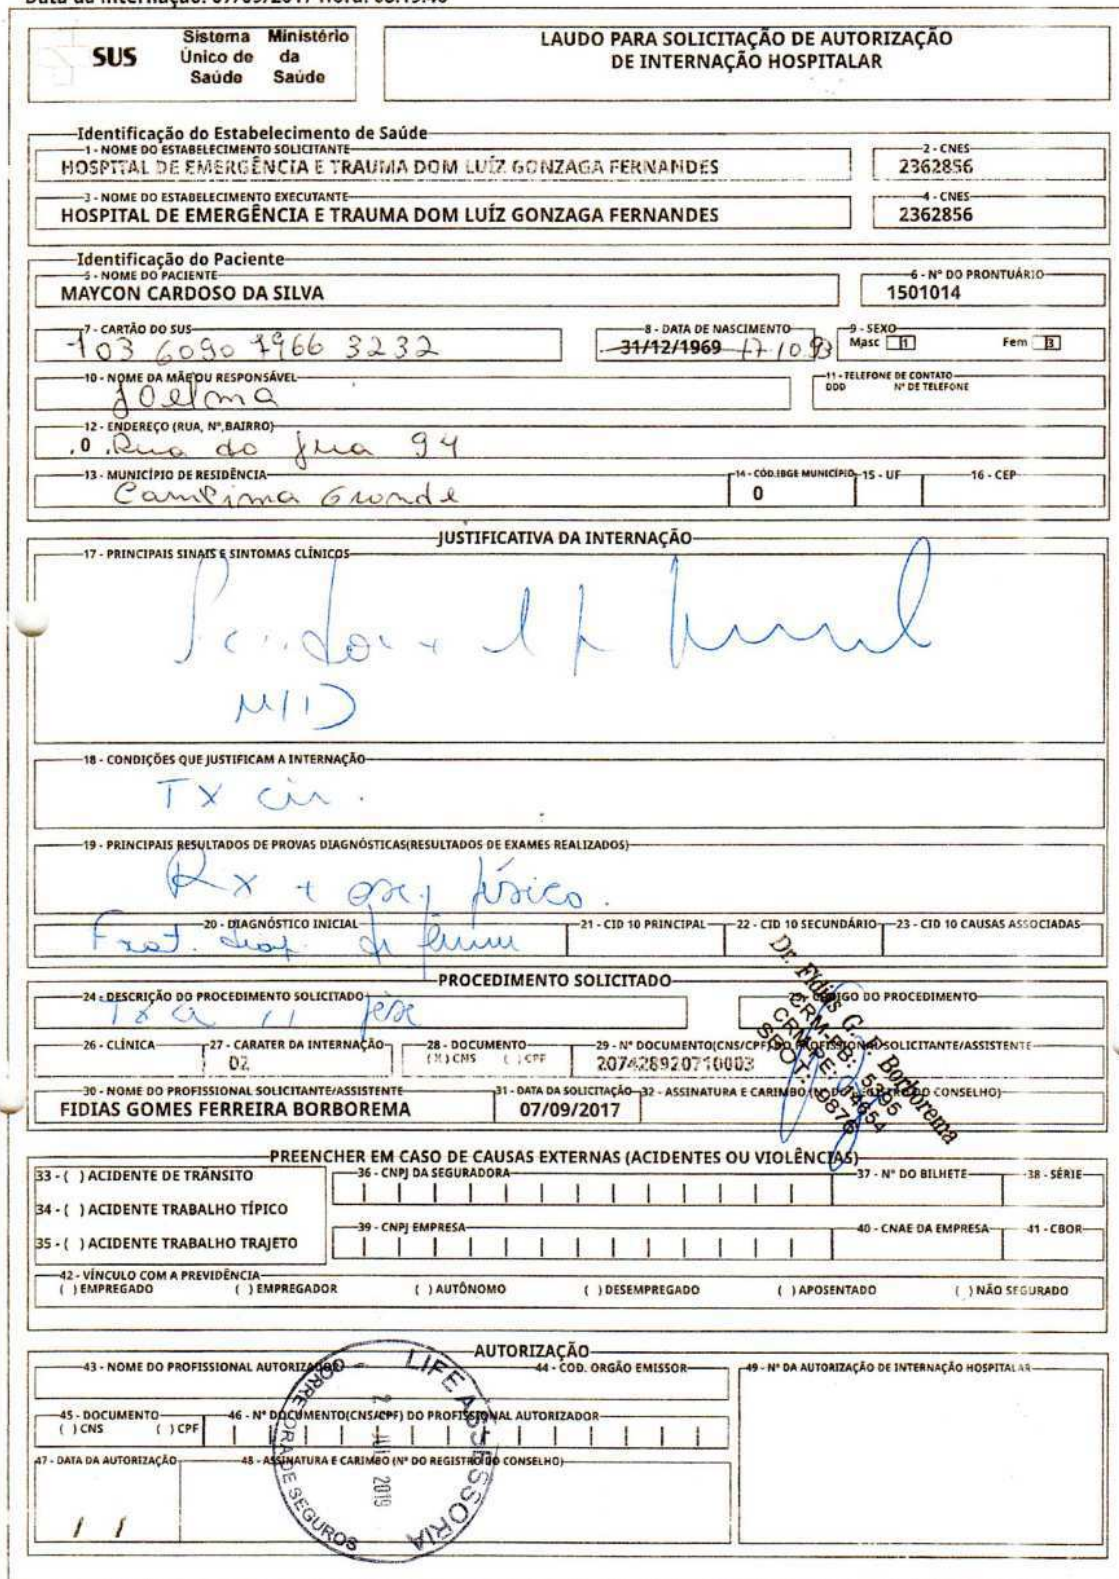 SUS
Sistema Único de Saúde
Ministério da Saúde
LAUDO PARA SOLICITAÇÃO DE AUTORIZAÇÃO
DE INTERNAÇÃO HOSPITALAR
Identificação do Estabelecimento de Saúde
1 - NOME DO ESTABELECIMENTO SOLICITANTE
2 - CNES
HOSPITAL DE EMERGÊNCIA E TRAUMA DOM LUÍZ GONZAGA FERNANDES
2362856
3 - NOME DO ESTABELECIMENTO EXECUTANTE
4 - CNES
HOSPITAL DE EMERGÊNCIA E TRAUMA DOM LUÍZ GONZAGA FERNANDES
2362856
Identificação do Paciente
5 - NOME DO PACIENTE
6 - Nº DO PRONTUÁRIO
MAYCON CARDOSO DA SILVA
1501014
7 - CARTÃO DO SUS
8 - DATA DE NASCIMENTO
9 - SEXO
3232
31/12/1969 17.10.93
Masc 1 Fem 3
10 - NOME DA MÃE OU RESPONSÁVEL
11 - TELEFONE DE CONTATO
DDD Nº DE TELEFONE
Joelma
12 - ENDEREÇO (RUA, Nº,BAIRRO)
.0 . Rua do 94
13 - MUNICÍPIO DE RESIDÊNCIA
14 - CÓD.IBGE MUNICÍPIO
15 - UF
16 - CEP
Campina Grande
0
JUSTIFICATIVA DA INTERNAÇÃO
17 - PRINCIPAIS SINAIS E SINTOMAS CLÍNICOS
MID
18 - CONDIÇÕES QUE JUSTIFICAM A INTERNAÇÃO
Tx cir.
19 - PRINCIPAIS RESULTADOS DE PROVAS DIAGNÓSTICAS(RESULTADOS DE EXAMES REALIZADOS)
Rx + físico.
20 - DIAGNÓSTICO INICIAL
21 - CID 10 PRINCIPAL
22 - CID 10 SECUNDÁRIO
23 - CID 10 CAUSAS ASSOCIADAS
Frat.
PROCEDIMENTO SOLICITADO
24 - DESCRIÇÃO DO PROCEDIMENTO SOLICITADO
25 - CÓDIGO DO PROCEDIMENTO
26 - CLÍNICA
27 - CARATER DA INTERNAÇÃO
28 - DOCUMENTO
29 - Nº DOCUMENTO(CNS/CPF) DO PROFISSIONAL SOLICITANTE/ASSISTENTE
02
(X) CNS ( ) CPF
207428920710003
30 - NOME DO PROFISSIONAL SOLICITANTE/ASSISTENTE
31 - DATA DA SOLICITAÇÃO
32 - ASSINATURA E CARIMBO DO CONSELHO)
FIDIAS GOMES FERREIRA BORBOREMA
07/09/2017
Dr. Fidias G. F. Borborema
CRM-PB: 5395
CRM-PE: 14654
SBOT: 9876
PREENCHER EM CASO DE CAUSAS EXTERNAS (ACIDENTES OU VIOLÊNCIAS)
33 - ( ) ACIDENTE DE TRÂNSITO
36 - CNPJ DA SEGURADORA
37 - Nº DO BILHETE
38 - SÉRIE
34 - ( ) ACIDENTE TRABALHO TÍPICO
35 - ( ) ACIDENTE TRABALHO TRAJETO
39 - CNPJ EMPRESA
40 - CNAE DA EMPRESA
41 - CBOR
42 - VÍNCULO COM A PREVIDÊNCIA
( ) EMPREGADO ( ) EMPREGADOR ( ) AUTÔNOMO ( ) DESEMPREGADO ( ) APOSENTADO ( ) NÃO SEGURADO
AUTORIZAÇÃO
43 - NOME DO PROFISSIONAL AUTORIZADOR
44 - COD. ORGÃO EMISSOR
49 - Nº DA AUTORIZAÇÃO DE INTERNAÇÃO HOSPITALAR
45 - DOCUMENTO
46 - Nº DOCUMENTO(CNS/CPF) DO PROFISSIONAL AUTORIZADOR
( ) CNS ( ) CPF
47 - DATA DA AUTORIZAÇÃO
48 - ASSINATURA E CARIMBO (Nº DO REGISTRO DO CONSELHO)
/ /
LIFE ASSESSORIA
CORRETORA DE SEGUROS
2019